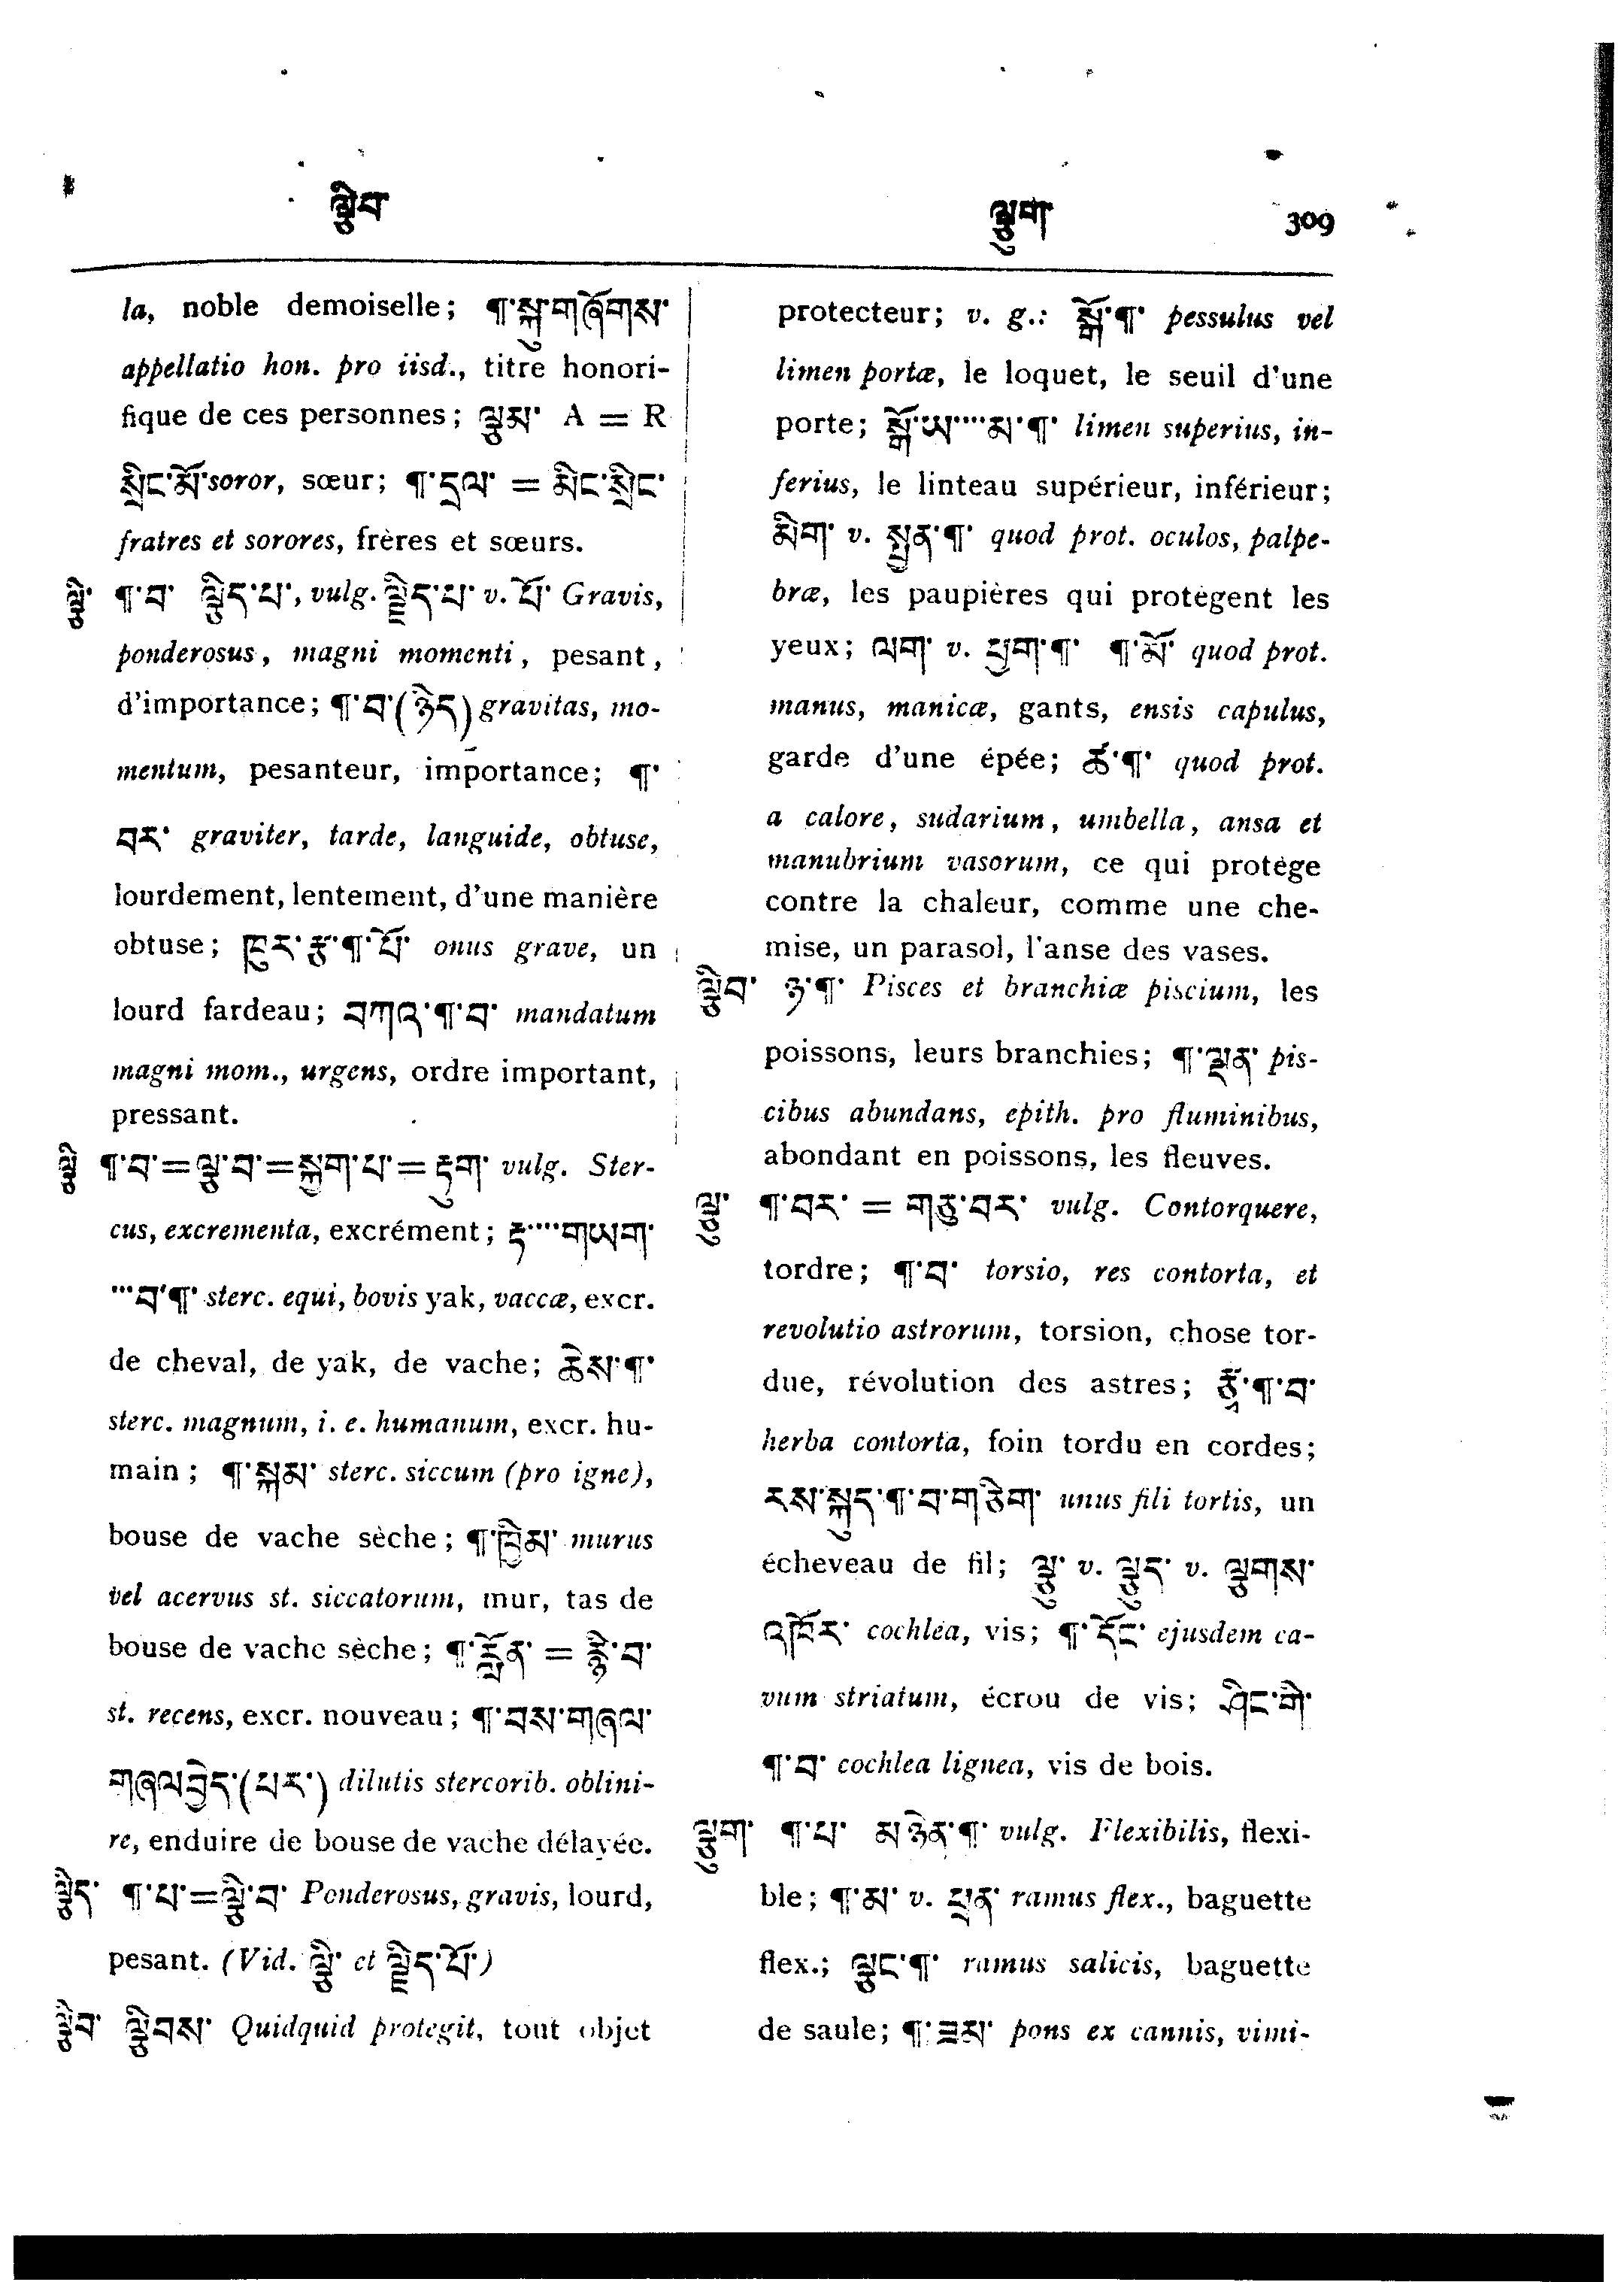 ལྕིབ་
ལྕུག་ 309
la, noble demoiselle; ¶་སྐུ་གཞོགས་
appellatio hon. pro iisd., titre honori-
fique de ces personnes; ལྕམ་ A = R
སྲིང་མོ་ soror, sœur; ¶་དྲལ་ = མིང་སྲིང་
fratres et sorores, frères et sœurs.
ལྕི་ ¶་བ་ ལྕིད་པ་, vulg. ལྗིད་པ་ v. པོ་ Gravis,
ponderosus, magni momenti, pesant,
d'importance; ¶་བ་(ཉིད) gravitas, mo-
mentum, pesanteur, importance; ¶་
བར་ graviter, tarde, languide, obtuse,
lourdement, lentement, d'une manière
obtuse; ཁུར་རྩ་¶་པོ་ onus grave, un
lourd fardeau; བཀའ་¶་བ་ mandatum
magni mom., urgens, ordre important,
pressant.
ལྕི ¶་བ་=ལྕ་བ་=སྐྱག་པ་=རྟུག་ vulg. Ster-
cus, excrementa, excrément; རྟ་····གཡག་
···བ་¶་ sterc. equi, bovis yak, vaccæ, excr.
de cheval, de yak, de vache; ཆེས་¶་
sterc. magnum, i. e. humanum, excr. hu-
main; ¶་སྐམ་ sterc. siccum (pro igne),
bouse de vache sèche; ¶་ཁྱིམ་ murus
vel acervus st. siccatorum, mur, tas de
bouse de vache sèche; ¶་རློན་ = རྙི་བ་
st. recens, excr. nouveau; ¶་བས་གཞལ་
གཞལབྱེད་(པར་) dilutis stercorib. oblini-
re, enduire de bouse de vache délayée.
ལྕིད་ ¶་པ་=ལྕི་བ་ Ponderosus, gravis, lourd,
pesant. (Vid. ལྕི་ et ལྗིད་པོ་)
ལྕིབ་ ལྕིབས་ Quidquid protegit, tout objet
protecteur; v. g.: སྒོ་¶་ pessulus vel
limen portæ, le loquet, le seuil d'une
porte; སྒོ་ཡ་····མ་¶་ limen superius, in-
ferius, le linteau supérieur, inférieur;
མིག་ v. སྤྱན་¶་ quod prot. oculos, palpe-
bræ, les paupières qui protègent les
yeux; ལག་ v. ཕྱག་¶་ ¶་མོ་ quod prot.
manus, manicæ, gants, ensis capulus,
garde d'une épée; ཚ་¶་ quod prot.
a calore, sudarium, umbella, ansa et
manubrium vasorum, ce qui protège
contre la chaleur, comme une che-
mise, un parasol, l'anse des vases.
ལྕིབ་ ཉ་¶་ Pisces et branchiæ piscium, les
poissons, leurs branchies; ¶་ལྡན་ pis-
cibus abundans, epith. pro fluminibus,
abondant en poissons, les fleuves.
ལྕུ་ ¶་བར་ = གཅུ་བར་ vulg. Contorquere,
tordre; ¶་བ་ torsio, res contorta, et
revolutio astrorum, torsion, chose tor-
due, révolution des astres; རྩྭ་¶་བ་
herba contorta, foin tordu en cordes;
རས་སྐུད་¶་བ་གཅིག་ unus fili tortis, un
écheveau de fil; ལྕུ་ v. ལྕུད་ v. ལྕུགས་
འཁོར་ cochlea, vis; ¶་དོང་ ejusdem ca-
vum striatum, écrou de vis; ཤིང་གི་
¶་བ་ cochlea lignea, vis de bois.
ལྕུག་ ¶་པ་ མཉེན་¶་ vulg. Flexibilis, flexi-
ble; ¶་མ་ v. ཕྲན་ ramus flex., baguette
flex.; ལྕང་¶་ ramus salicis, baguette
de saule; ¶་ཟམ་ pons ex cannis, vimi-